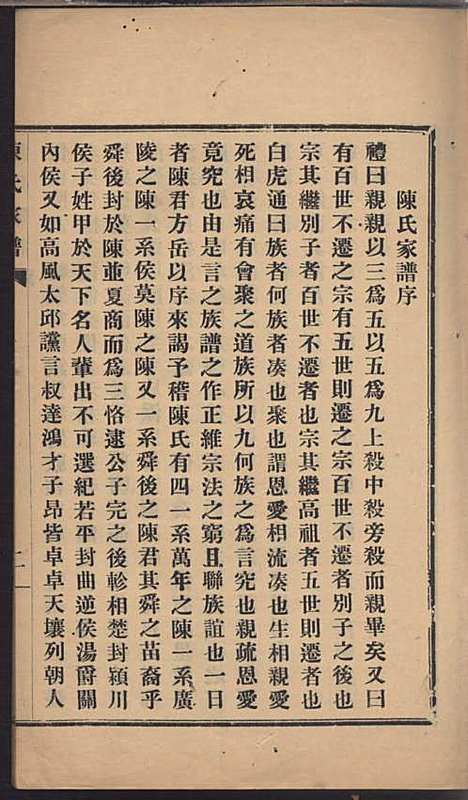 陳氏家譜序
禮曰親親以三爲五以五爲九上殺中殺旁殺而親畢矣又曰
有百世不遷之宗有五世則遷之宗百世不遷者別子之後也
宗其繼別子者百世不遷者也宗其繼高祖者五世則遷者也
白虎通曰族者何族者湊也聚也謂恩愛相流湊也生相親愛
死相哀痛有會聚之道族所以九何族之爲言究也親疏恩愛
竟究也由是言之族譜之作正維宗法之窮且聯族誼也一日
者陳君方岳以序來謁予稽陳氏有四一系萬年之陳一系廣
陵之陳一系侯莫陳之陳又一系舜後之陳君其舜之苗裔乎
舜後封於陳並夏商而爲三恪逮公子完之後軫相楚封潁川
侯子姓甲於天下名人輩出不可選紀若平封曲逆侯湯爵關
內侯又如高風太邱讜言叔達鴻才子昂皆卓卓天壤列朝人
陳氏家譜
二